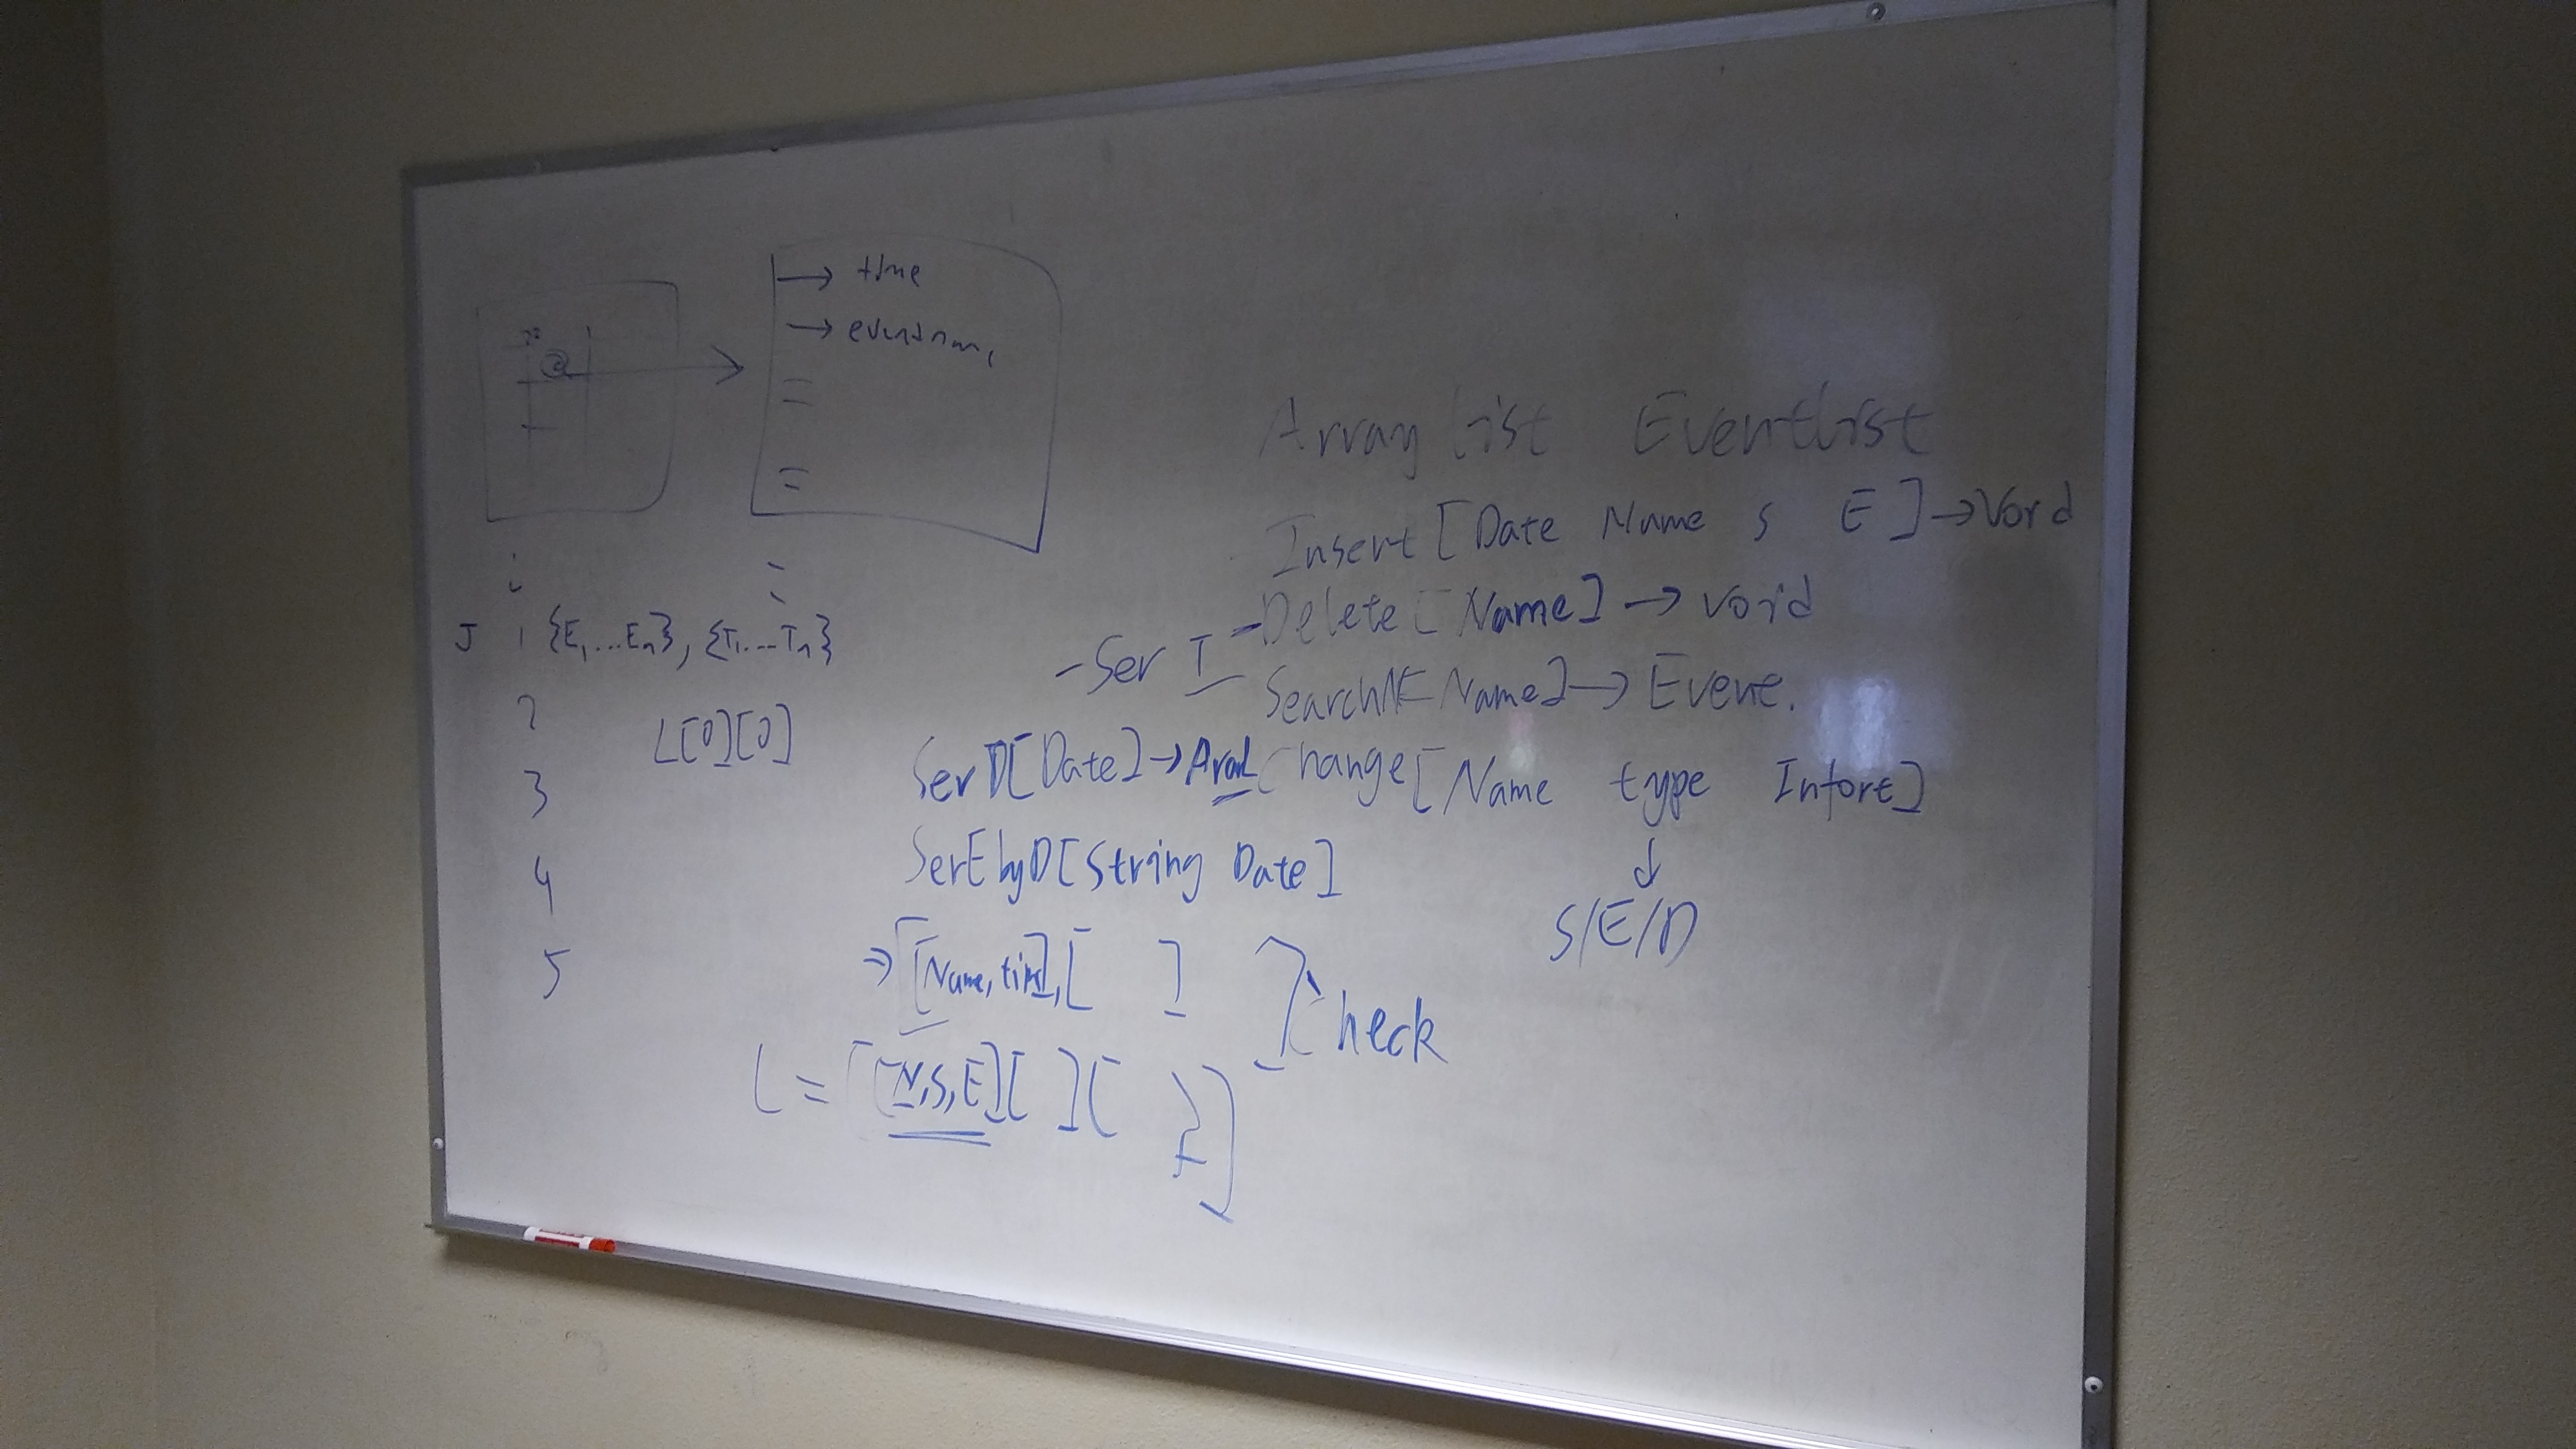 → time
→
=
=
J 1 {E1,...En}, {T1...Tn}
2
L[0][0]
3
4
5
Array list Eventlist
Insert [Date Name S E] → Void
- Delete [Name] → Void
- Ser I
SearchN[Name] → Evene.
SerD[Date] →
Change [Name type Infort]
↓
S/E/D
SerE by D[String Date]
⇒ [[Name, time], [ ] ]
Check
L = [[N,S,E][ ][ ]]